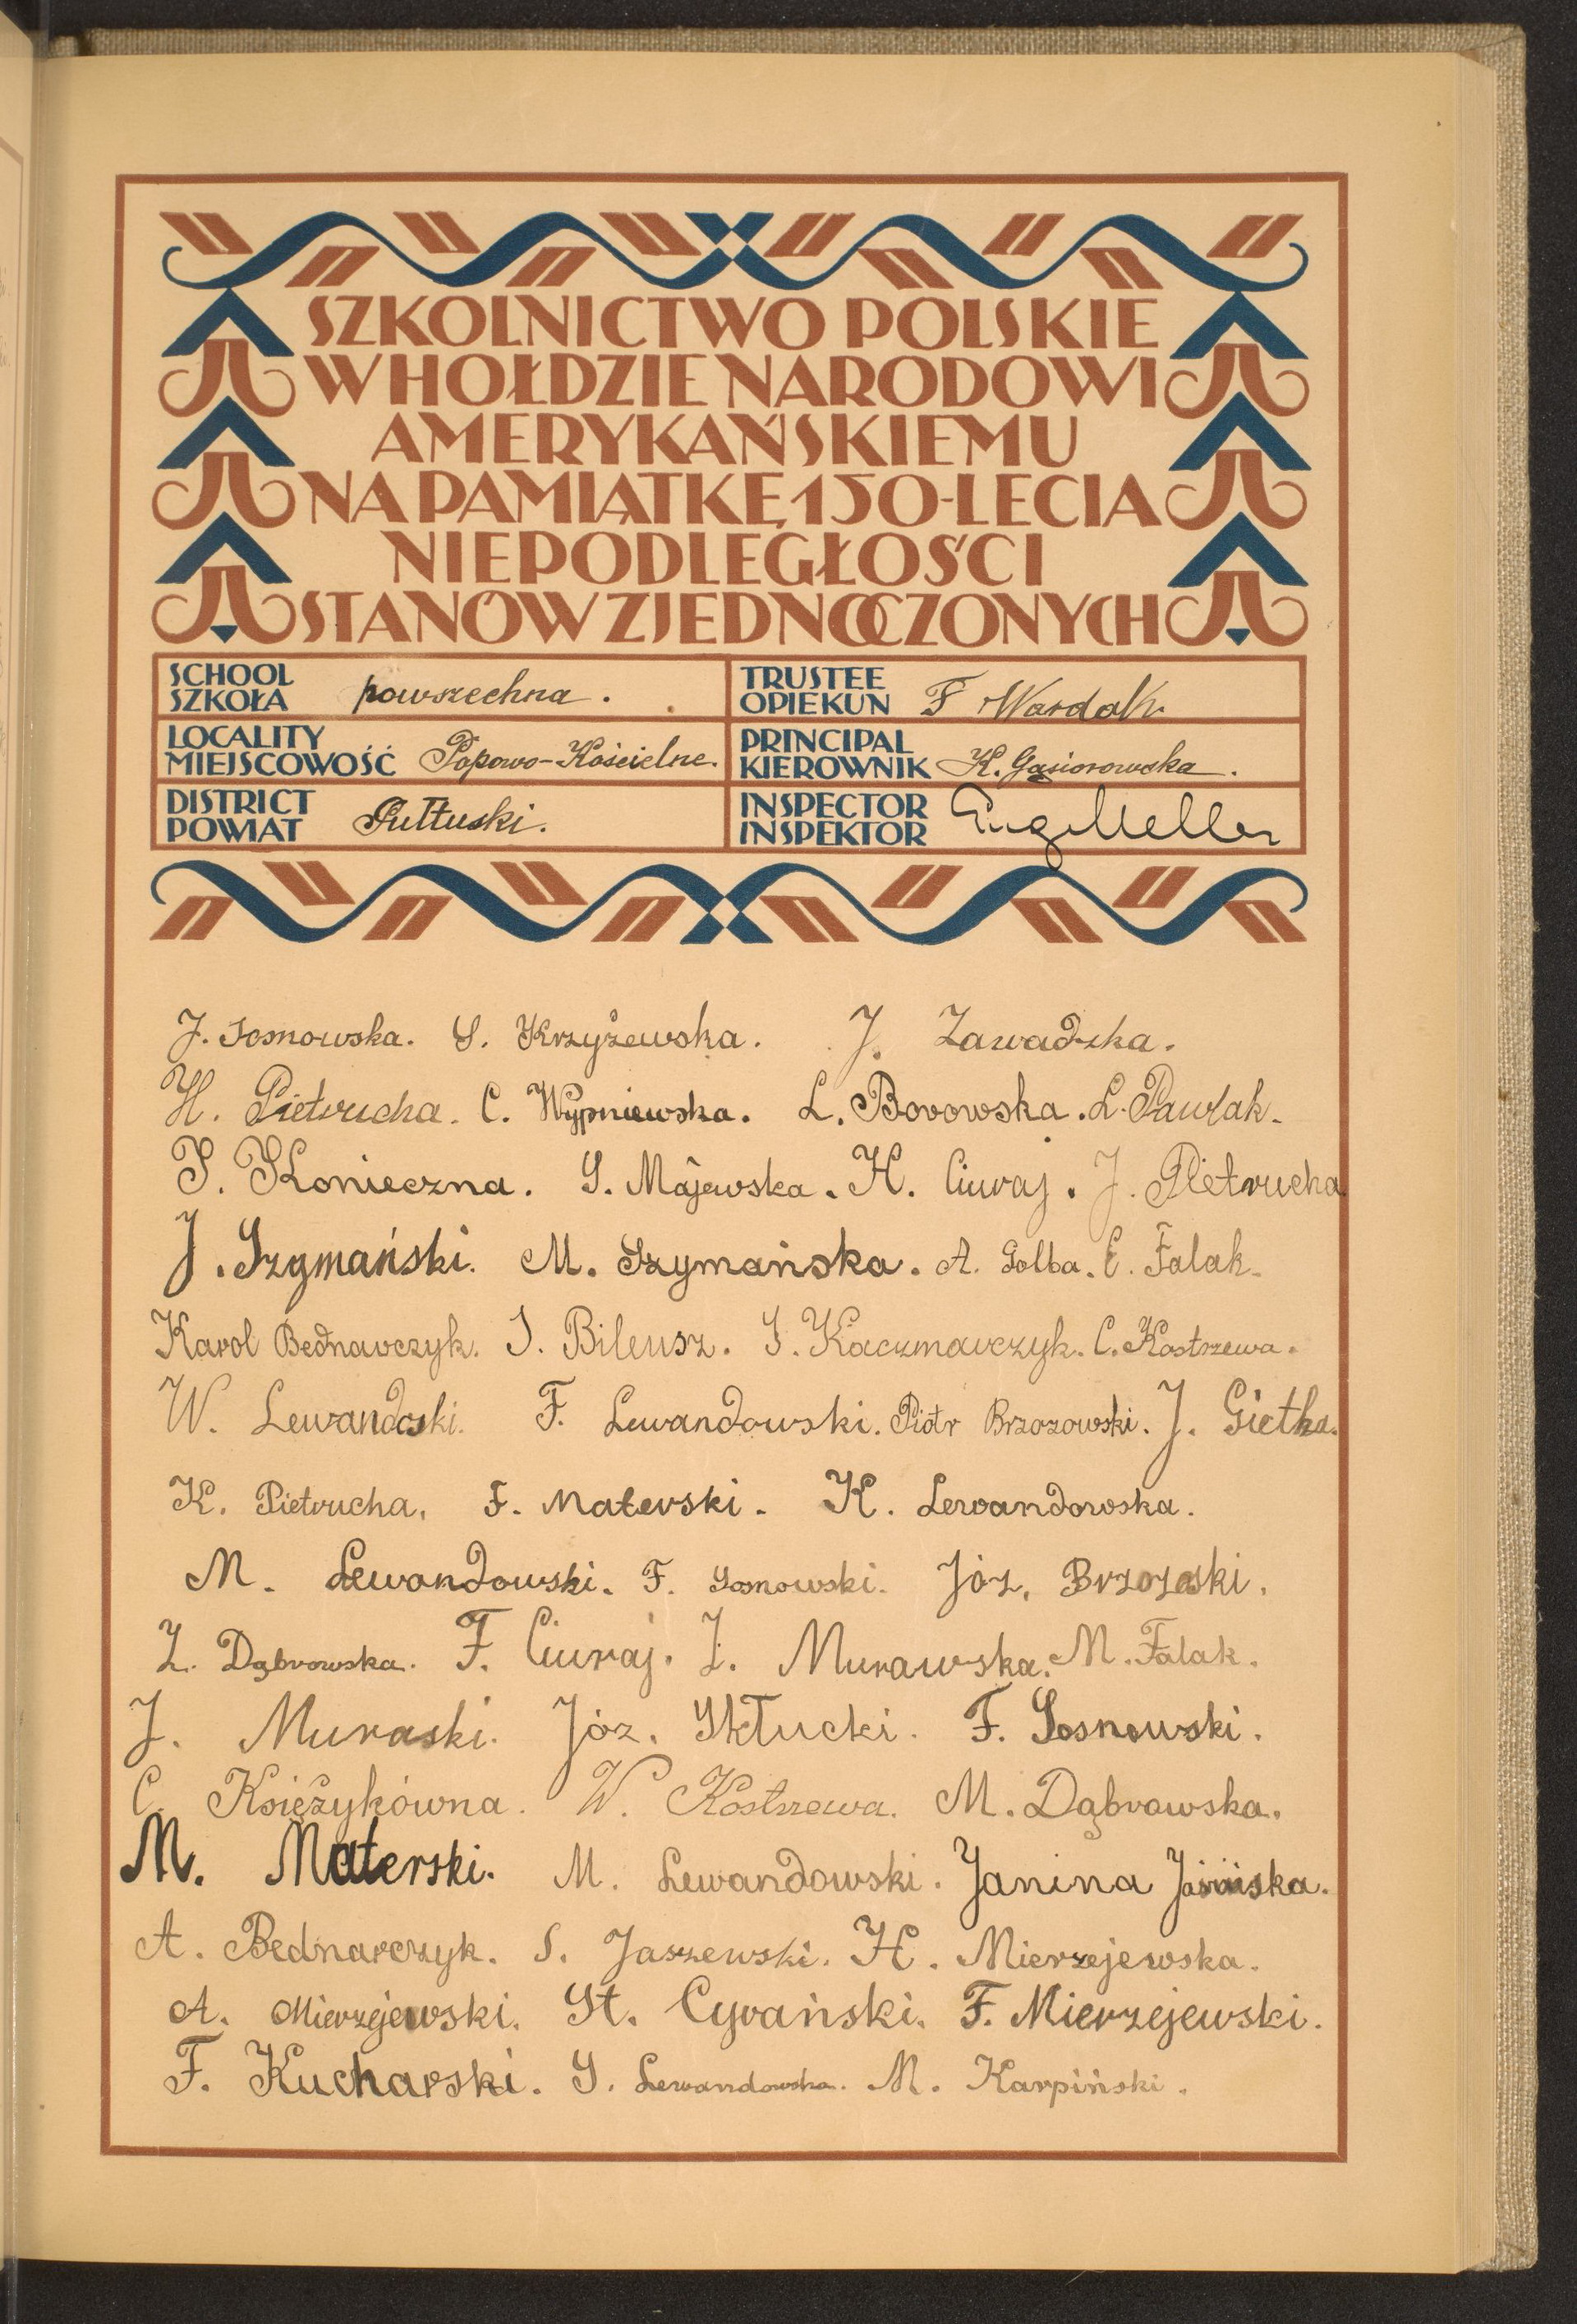 SZKOLNICTWO POLSKIE
W HOŁDZIE NARODOWI
AMERYKAŃSKIEMU
NA PAMIĄTKĘ 150-LECIA
NIEPODLEGŁOŚCI
STANÓW ZJEDNOCZONYCH
SCHOOL
SZKOŁA powszechna.
TRUSTEE
OPIEKUN F Wardak
LOCALITY
MIEJSCOWOŚĆ Popowo-Kościelne.
PRINCIPAL
KIEROWNIK K. Gąsiorowska.
DISTRICT
POWIAT Pułtuski.
INSPECTOR
INSPEKTOR
J. Sosnowska. S. Krzyżewska. J. Zawadzka.
H. Pietrucha. C. Wypniewska. L. Borowska. L. Pawlak.
S. Konieczna. S. Majewska. H. Ciuraj. J. Pietrucha
J. Szymański. M. Szymańska. A. Golba. E. Falak.
Karol Bednarczyk. J. Bileusz. S. Kaczmarczyk. C. Kostrzewa.
W. Lewandoski. F. Lewandowski. Piotr Brzozowski. J. Gietka.
K. Pietrucha. F. Materski. K. Lewandowska.
M. Lewandowski. F. Sosnowski. Józ. Brzozoski.
Z. Dąbrowska. F. Ciuraj. Z. Murawska. M. Falak.
J. Muraski. Józ. Skłucki. F. Sosnowski.
C. Księżykówna. W. Kostrzewa. M. Dąbrowska.
M. Materski. M. Lewandowski. Janina
A. Bednarczyk. S. Jaszewski. H. Mierzejewska.
A. Mierzejewski. St. Cyrański. F. Mierzejewski.
F. Kucharski. S. Lewandowska. M. Karpiński.